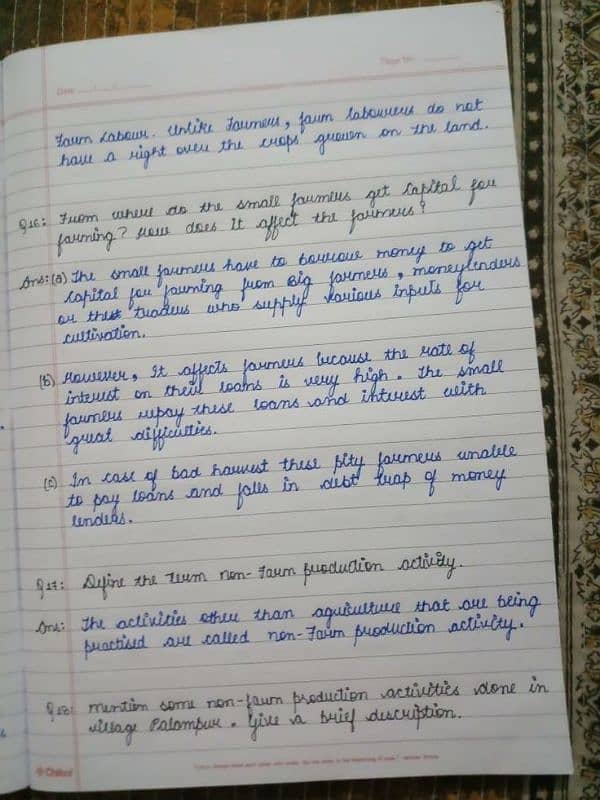 Date
Page No.
Farm Labour. Unlike Farmers, farm labourers do not
have a right over the crops grown on the land.
Q16: From where do the small farmers get Capital for
farming? How does it affect the farmers?
Ans: (a) The small farmers have to borrow money to get
capital for farming from Big farmers, moneylenders
or the traders who supply various inputs for
cultivation.
(b) However, It affects farmers because the rate of
interest on their loans is very high. The small
farmers repay these loans and interest with
great difficulties.
(c) In case of bad harvest these pity farmers unable
to pay loans and falls in debt trap of money
lenders.
Q17: Define the term non-Farm production activity.
Ans: The activities other than agriculture that are being
practised are called non-Farm production activity.
Q18: mention some non-farm production activities done in
village Palampur. Give a brief description.